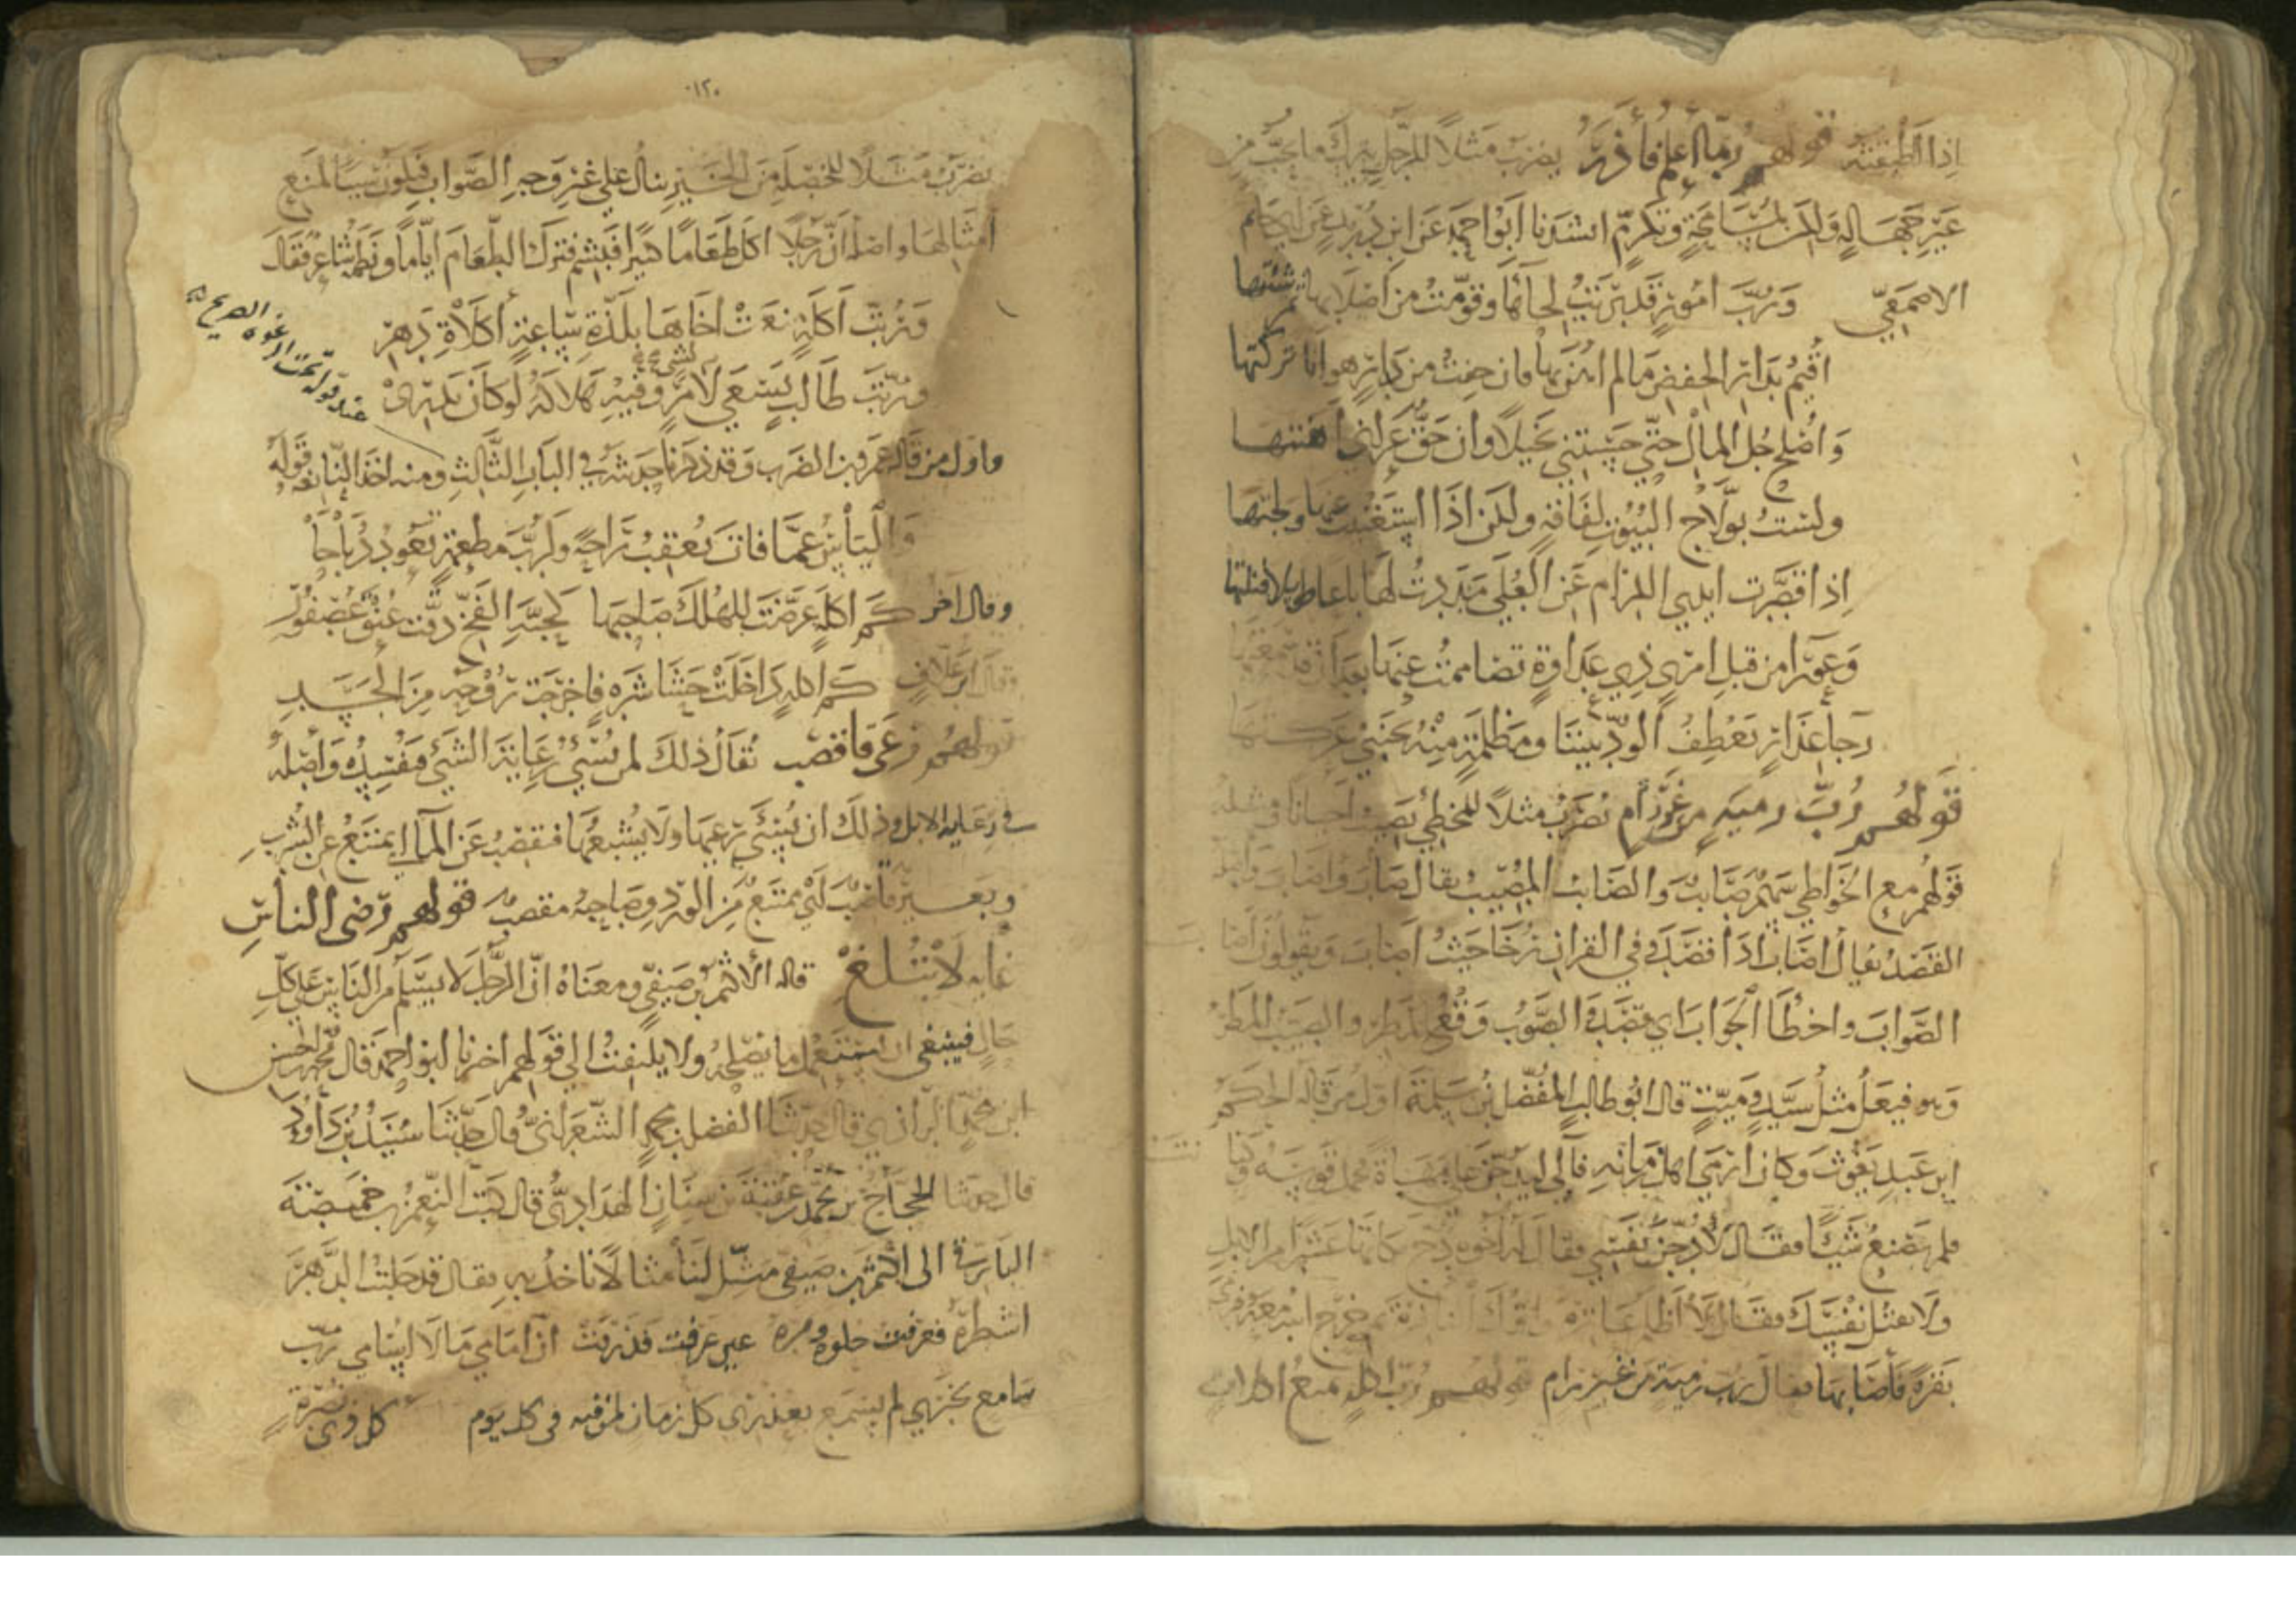 اذا اطبقته قولهم ربما أعلم فأذر يضرب مثلا للرجل يترك ما يحب من
غير جهالة ولكن لمسامحة وتكرم انشدنا ابو احمد عن ابن دريد عن ابي حاتم
الاصمعي ورب امور قد بريت لحاءها وقومت من اصلابها ثم شئتها
أقيم بدار الحفض مالم اهن بها فان خفت من دار هوانا تركتها
وأصلح جل المال حتى حسبتني بخيلا وان حق عراني اهنتها
ولست بولاج البيوت لفاقة ولكن اذا استغنيت عنها ولجتها
اذا قصرت ايدي اللئام عن العلى مددت لها باعا طويلا فنلتها
وعورا من قبل امرئ ذي عداوة تصاممت عنها بعد ان قد سمعتها
رجا غد ان يعطف الود بيننا ومظلمة منه بجنبي عركتها
قولهم رب رمية من غير رام يضرب مثلا للمخطئ يصيب أحيانا ومثله
قولهم مع الخواطئ سهم صائب والصائب المصيب يقال صاب واصاب واصله
القصد يقال اصاب اذا قصد وفي القران رخا حيث اصاب ويقولون اصاب
الصواب واخطأ الجواب اي قصد والصوب وقع المطر والصيب المطر
وهو فيعل مثل سيد وميت قال ابو طالب المفضل بن سلمة اول من قاله الحكم
ابن عبد يغوث وكان ارمى اهل زمانه فآلى ليذبحن على مهاة فحمل قوسه و
فلم يصنع شيئا فقال لاذبحن نفسي فقال له اخوه اذبح مكانها عشرا من الابل
ولا تقتل نفسك فقال لا اظلم عاترة واترك النافرة ثم خرج ابنه معه فرمى
بقرة فأصابها فقال رب رمية من غير رام قولهم رب اكلة تمنع اكلات
١٢٠
يضرب مثلا للخصلة من الخير تنال على غير وجه الصواب فيكون سببا لمنع
أمثالها واصله ان رجلا اكل طعاما كثيرا فبشم فترك الطعام اياما ونظمه شاعر فقال
وربت أكلة نعت اخاها بلذة ساعة أكلات دهر
وربت طالب يسعى لامر وفيه هلاكه لو كان يدرى
لشئ
واول من قاله عمرو بن الضرب وقد ذكرنا حديثه في الباب الثالث ومنه اخذ النابغة قوله
واليأس عما فات يعقب راحة ولرب مطعمة تعود ذباحا
وقال اخر كم اكلة عرضت للهلك صاحبها كحبة الفخ دقت عنق عصفور
وقال ابن علاف كم اكلة داخلت حشا شره فاخرجت روحه من الجسد
قولهم رعى فاقصب يقال ذلك لمن يسيء رعاية الشيء فيفسده وأصله
في رعاية الابل وذلك ان يسيء رعيها ولا يشبعها فتقصب عن الماء اي تمتنع عن الشرب
وبعير قاصب اي ممتنع من الورد وصاحبه مقصب قولهم رضى الناس
غاية لا تبلغ قاله الاكثم بن صيفي ومعناه ان الرجل لا يسلم من الناس على كل
حال فينبغي ان يستعمل ما يصلحه ولا يلتفت الى قولهم اخبرنا ابو احمد قال محمد بن الحسن
ابن محمد الرازي قال حدثنا الفضل بن محمد الشعراني قال حدثنا سنيد بن داود
قال حدثنا الحجاج بن محمد عن عقبة بن سنان الهدادي قال كتب النعمان بن خميصة
البارقي الى اكثم بن صيفي مثل لنا مثالا ناخذ به فقال قد حلبت الدهر
اشطره فعرفت حلوه ومره عين عرفت فذرفت ان امامي ما لا اسامي رب
سامع بخبري لم يسمع بعذري كل زمان لمن فيه في كل يوم